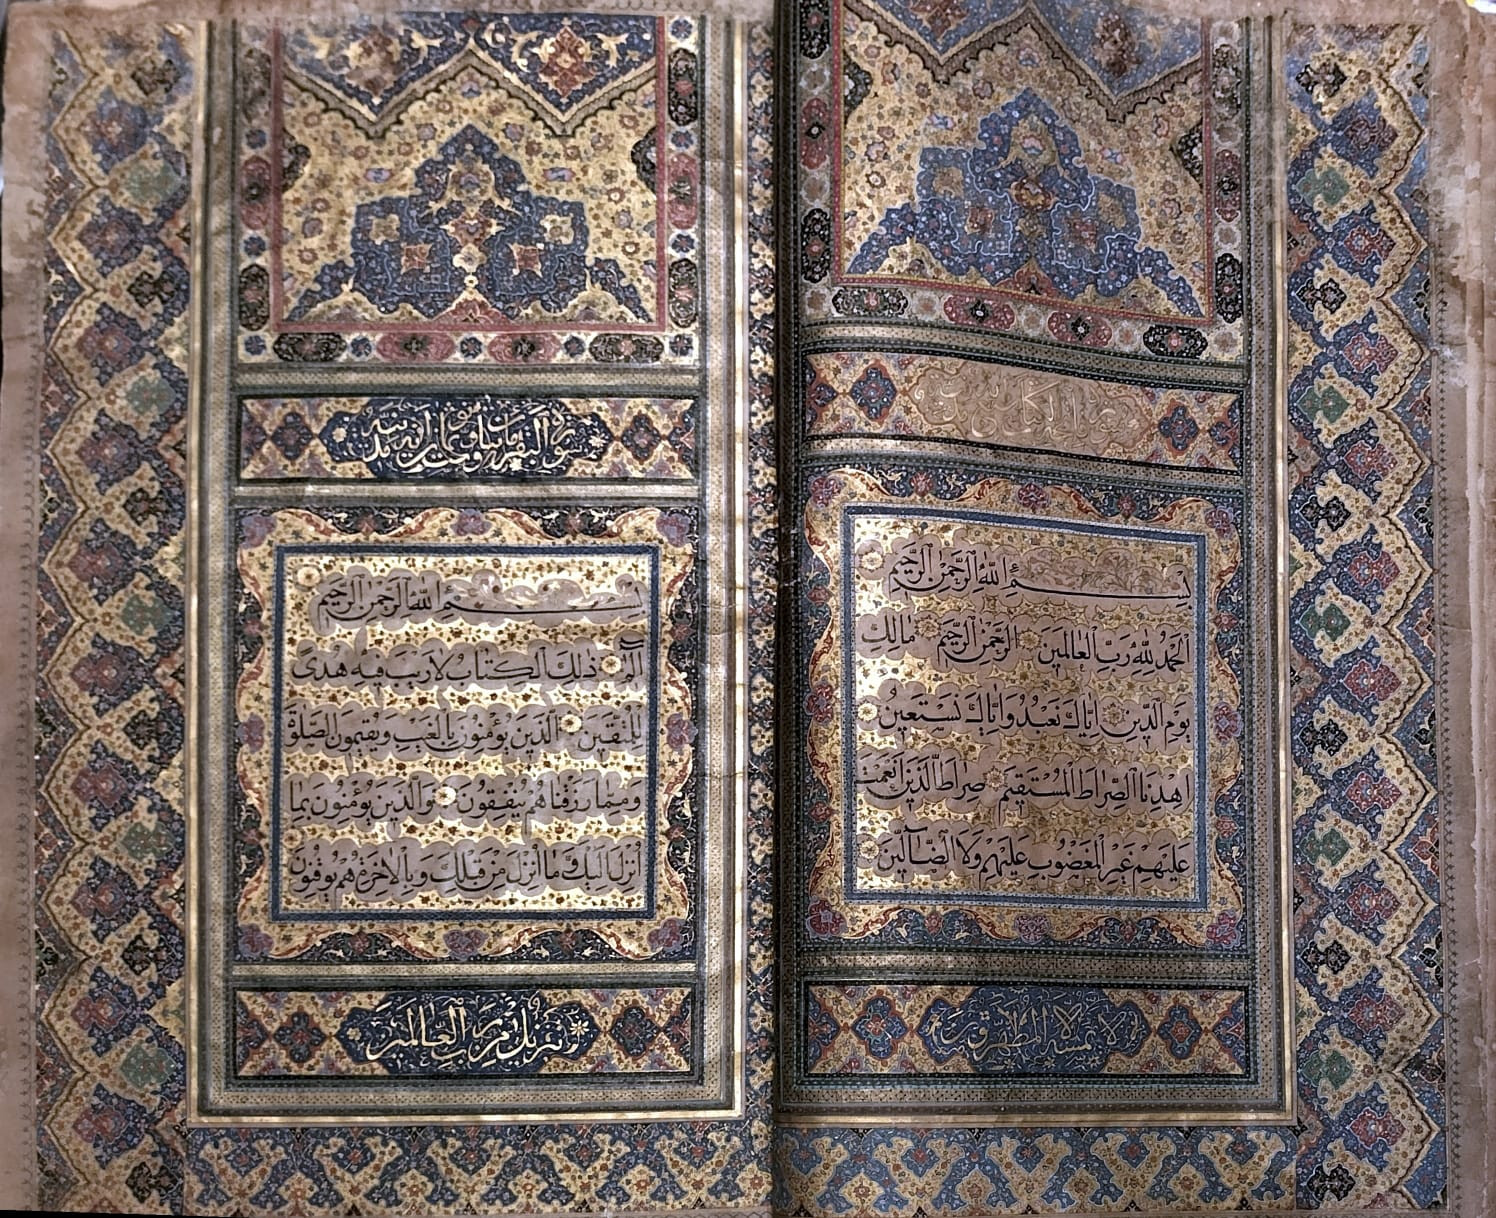 سورة الكتاب
بِسْمِ اللَّهِ الرَّحْمٰنِ الرَّحِيمِ
اَلْحَمْدُ لِلَّهِ رَبِّ الْعَالَمِينَ الرَّحْمٰنِ الرَّحِيمِ مَالِكِ
يَوْمِ الدِّينِ اِيَّاكَ نَعْبُدُ وَاِيَّاكَ نَسْتَعِينُ
اِهْدِنَا الصِّرَاطَ الْمُسْتَقِيمَ صِرَاطَ الَّذِينَ اَنْعَمْتَ
عَلَيْهِمْ غَيْرِ الْمَغْضُوبِ عَلَيْهِمْ وَلَا الضَّآلِّينَ
لا يمسه الا المطهرون
سورة البقرة مائتان و آية مدنية
بِسْمِ اللَّهِ الرَّحْمٰنِ الرَّحِيمِ
الٓمٓ ذٰلِكَ الْكِتَابُ لَا رَيْبَ فِيهِ هُدًى
لِلْمُتَّقِينَ اَلَّذِينَ يُؤْمِنُونَ بِالْغَيْبِ وَيُقِيمُونَ الصَّلٰوةَ
وَمِمَّا رَزَقْنَاهُمْ يُنْفِقُونَ وَالَّذِينَ يُؤْمِنُونَ بِمَا
اُنْزِلَ اِلَيْكَ وَمَا اُنْزِلَ مِنْ قَبْلِكَ وَبِالْاٰخِرَةِ هُمْ يُوقِنُونَ
تنزيل من رب العالمين